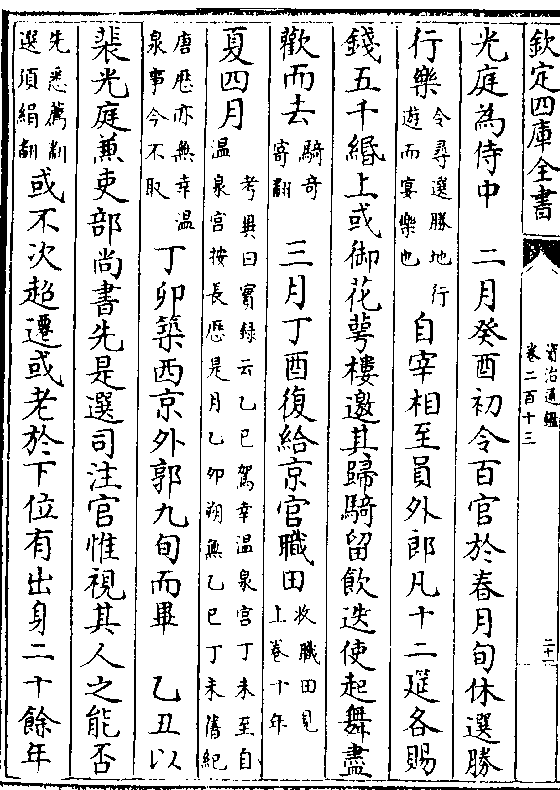 欽定四庫全書
資治通鑑
卷二百十三
光庭為侍中　二月癸酉初令百官於春月旬休選勝
行樂令尋選勝地行
遊而宴樂也自宰相至員外郎凡十二筵各賜
錢五千緡上或御花萼樓邀其歸騎留飲迭使起舞盡
歡而去騎奇
寄翻　三月丁酉復給京官職田收職田見
上卷十年
夏四月考異曰實錄云乙巳駕幸溫泉宮丁未至自
溫泉宮按長歷是月乙卯朔無乙巳丁未舊紀
唐歷亦無幸溫
泉事今不取　丁卯築西京外郭九旬而畢　乙丑以
裴光庭兼吏部尚書先是選司注官惟視其人之能否
先悉薦翻
選須絹翻或不次超遷或老於下位有出身二十餘年